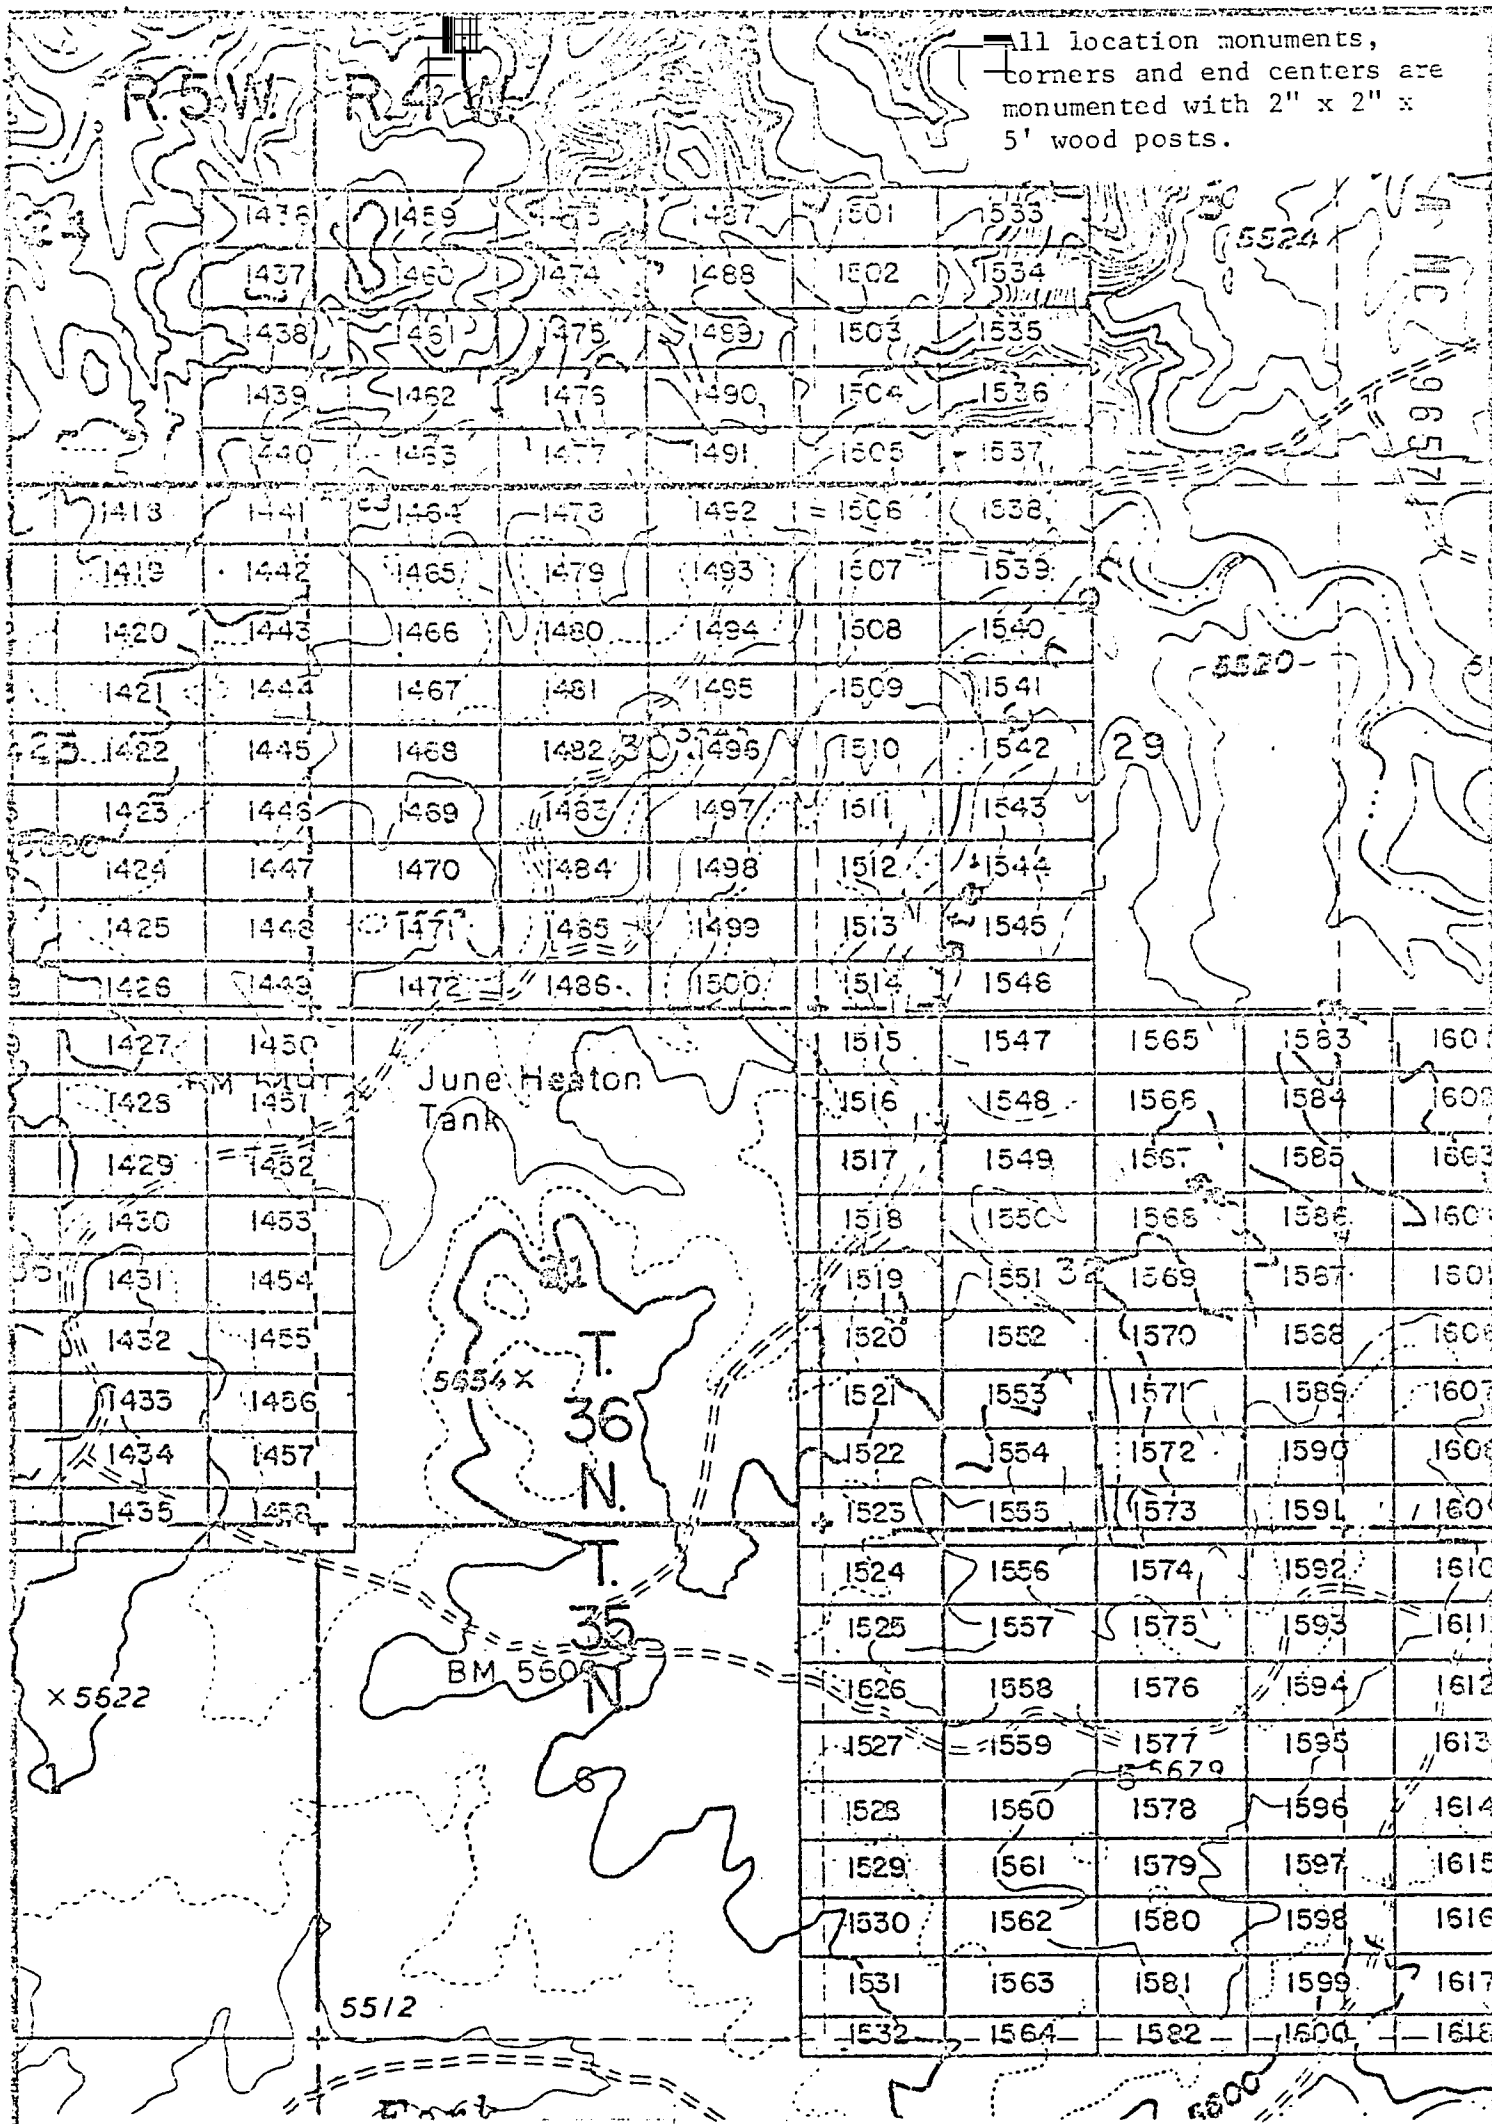 All location monuments,
corners and end centers are
monumented with 2" x 2" x
5' wood posts.
R.5W. R.4W.
1459 1487 1501 1533
5524
1437 1460 1474 1488 1502 1534
A MC 96571
1438 1461 1475 1489 1503 1535
1439 1462 1476 1490 1504 1536
1440 1463 1477 1491 1505 1537
1418 1441 1464 1478 1492 1506 1538
1419 1442 1465 1479 1493 1507 1539
1420 1443 1466 1480 1494 1508 1540
5520
1421 1444 1467 1481 1495 1509 1541
1422 1445 1468 1482 30 1496 1510 1542 29
1423 1446 1469 1483 1497 1511 1543
1424 1447 1470 1484 1498 1512 1544
1425 1448 1471 1485 1499 1513 1545
1426 1449 1472 1486 1500 1514 1546
1427 1450 1515 1547 1565 1583
June Heaton
Tank
1428 1451 1516 1548 1566 1584
1429 1452 1517 1549 1567 1585 1603
1430 1453 1518 1550 1568 1586
31
1431 1454 1519 1551 32 1569 1587
1432 1455 1520 1552 1570 1588 1606
T.
36
N.
5654 X
1433 1456 1521 1553 1571 1589 1607
1434 1457 1522 1554 1572 1590 1608
1435 1458 1523 1555 1573 1591
T.
35
N.
1524 1556 1574 1592 1610
1525 1557 1575 1593 1611
BM 5609
X 5622
1526 1558 1576 1594 1612
1527 1559 1577 1595 1613
5 5679
1
6
1528 1560 1578 1596 1614
1529 1561 1579 1597 1615
1530 1562 1580 1598 1616
1531 1563 1581 1599 1617
5512
1532 1564 1582 1600 1618
5600